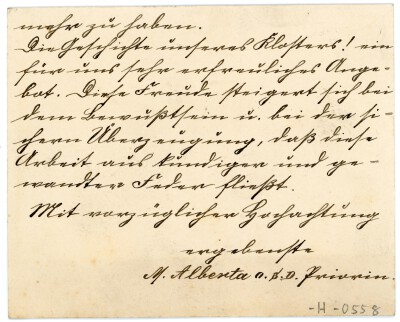 mehr zu haben.
Die Geschichte unseres Klosters! ein
für uns sehr erfreuliches Ange-
bot. Diese Freude steigert sich bei
dem Bewußtsein u. bei der si-
chern Überzeugung, daß diese
Arbeit aus kundiger und ge-
wandter Feder fließt.
Mit vorzüglicher Hochachtung
ergebenste
M. Alberta o. S. D. Priorin.
-H-0558